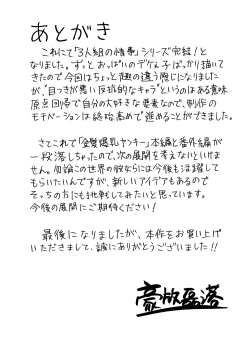 あとがき
これにて「3人組の情事」シリーズ完結！と
なりました。ずっとおっぱいのデケぇ子ばっかり描いて
きたので今回はちょっと趣の違う感じになりました
が、「目つきが悪い反抗的なキャラ」というのはある意味
原点回帰で自分の大好きな要素なので、制作の
モチベーションは終始高めで進めることができました。
さてこれで「金髪爆乳ヤンキー」本編と番外編が
一段落しちゃったので、次の展開を考えないといけ
ません。勿論この世界の彼女らには今後も活躍して
もらいたいんですが、新しいアイデアもあるので
そっちの方にも挑戦してみたいと思っています。
今後の展開にご期待ください！
最後になりましたが、本作をお買い上げ
いただきまして、誠にありがとうございました!!